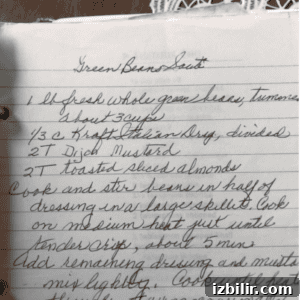 Green Beans Sauté
1 lb fresh whole green beans, trimmed
about 3 cups
1/3 c Kraft Italian Drsg, divided
2 T Dijon Mustard
2 T toasted sliced almonds
Cook and stir beans in half of
dressing in a large skillet. Cook
on medium heat just until
tender crisp, about 5 min
Add remaining dressing and musta
mix lightly. Cook
izbilir.com